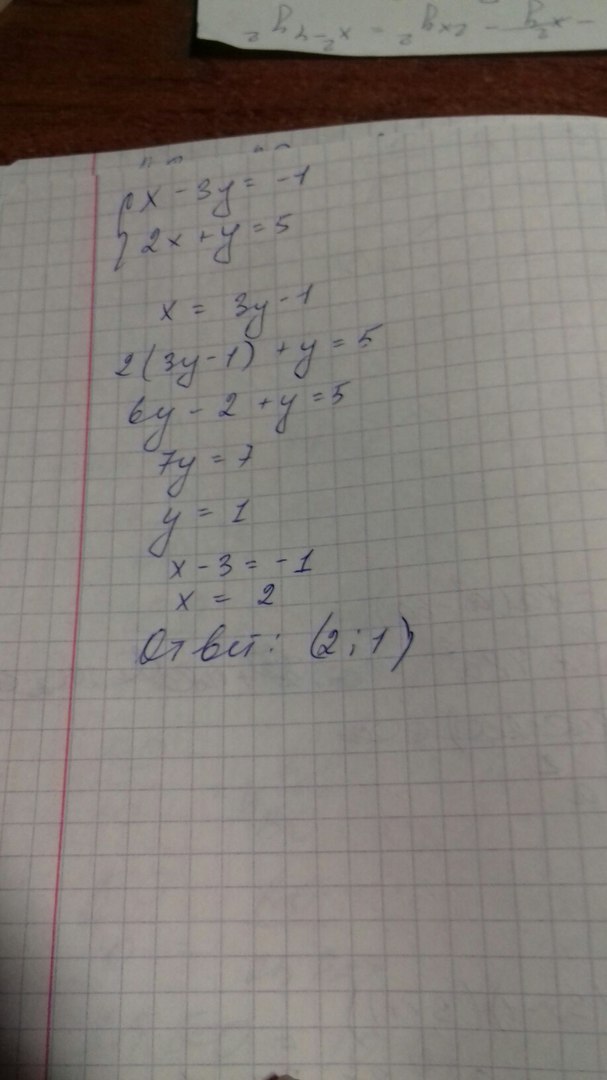 x - 3y = -1
2x + y = 5
x = 3y - 1
2(3y-1) + y = 5
6y - 2 + y = 5
7y = 7
y = 1
x - 3 = -1
x = 2
Ответ: (2; 1)